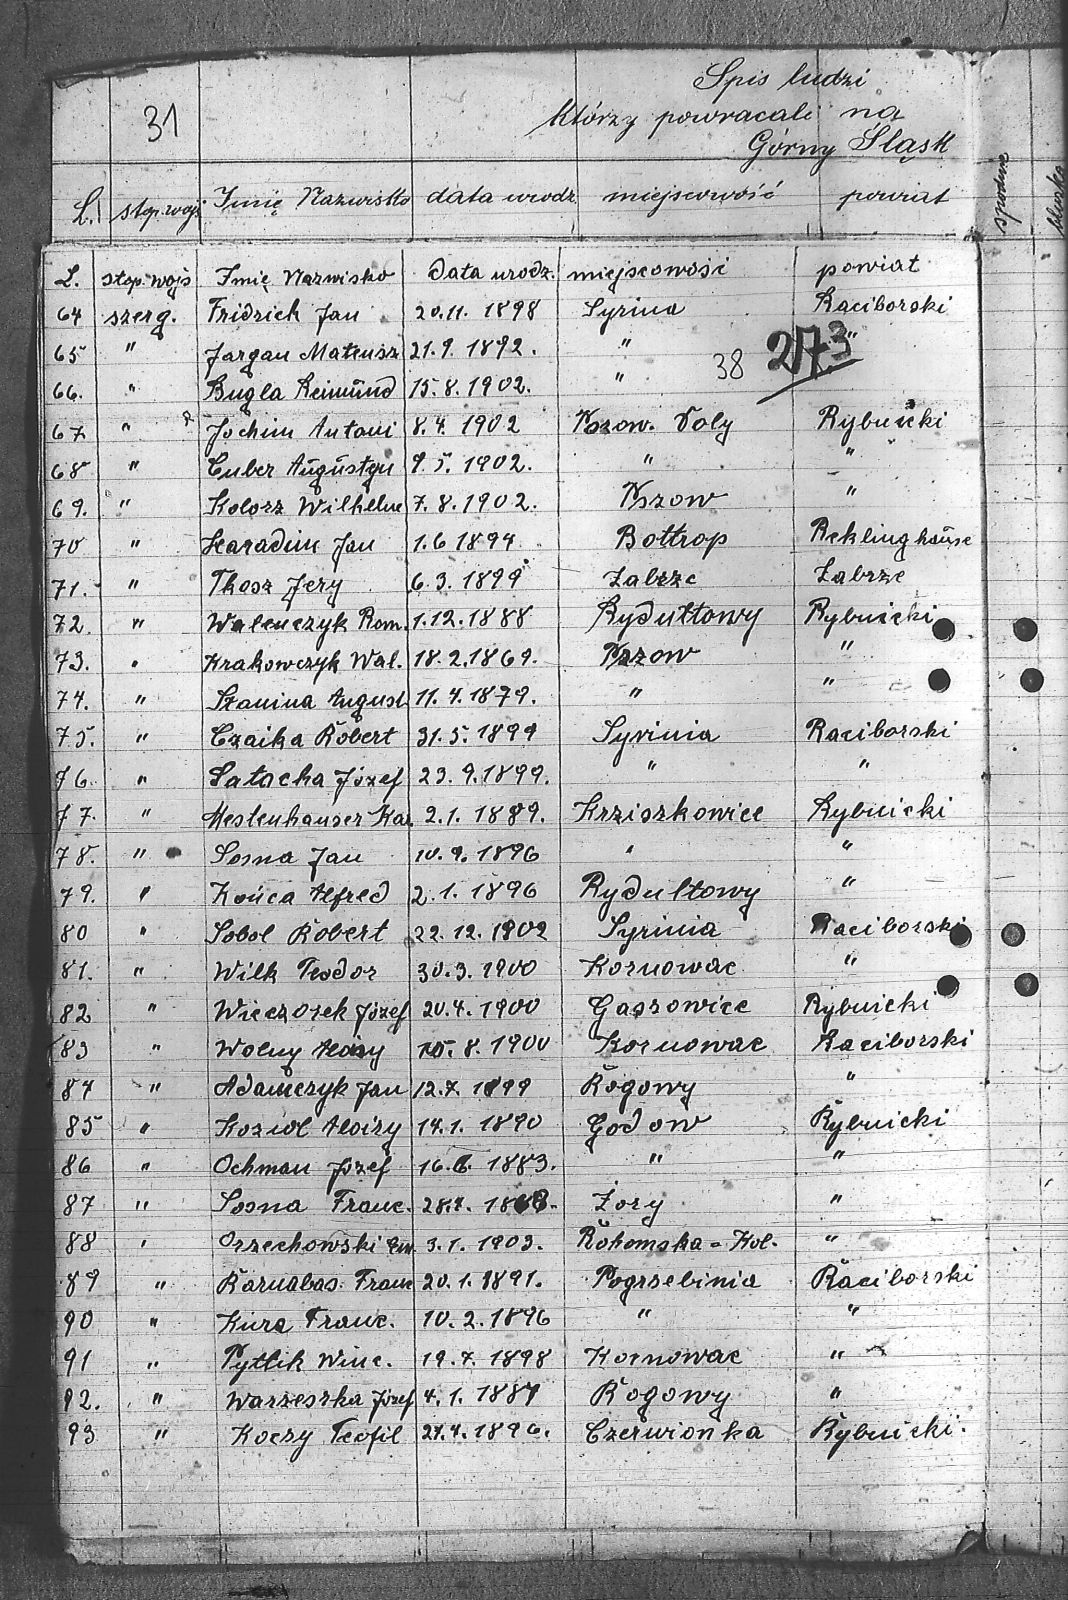 Spis ludzi
31 którzy powracali na
Górny Śląsk
L. stop. wojs Imię Nazwisko data urodz miejscowość powiat
spodnie
bluzka
L. stop. wojs Imię Nazwisko data urodz. miejscowość powiat
64 szerg. Fridrich Jan 20.11. 1898 Syrina Raciborski
65 " Jargan Mateusz 21.9. 1892. " "
38 273
66. " Bugla Reimund 15.8.1902. "
67 " Jochim Antoni 8.4. 1902 Pszow. Doly Rybnicki
68 " Cuber Augustyn 9.5. 1902. " "
69. " Kolorz Wilhelm 7.8.1902. Pszow "
70 " Haradim Jan 1.6 1894 Bottrop Reklinghause
71. " Tkosz Jery 6.3.1899 Zabrze Zabrze
72. " Walenczyk Rom. 1.12.1888 Rydułtowy Rybnicki
73. " Krakowczyk Wal. 18.2.1869. Pszow "
74. " Szanina August 11.4.1879. " "
75. " Czaika Robert 31.5.1899 Syrinia Raciborski
76. " Satacha Józef 23.9.1899. " "
77. " Mestenhauser Kar. 2.1.1889. Krziszkowice Rybnicki
78. " Sosna Jan 10.9.1896 " "
79. " Końca Alfred 2.1.1896 Rydultowy "
80 " Sobol Robert 22.12.1902 Syrinia Raciborski
81. " Wilk Teodor 30.3.1900 Kornowac "
82 " Wieczorek Józef 20.4.1900 Gaszowice Rybnicki
83 " Wolny Aloizy 15.8.1900 Kornowac Raciborski
84 " Adamczyk Jan 12.7.1899 Rogowy "
85 " Koziol Aloizy 14.1.1890 Godow Rybnicki
86 " Ochman Józef 16.6.1883. " "
87 " Sosna Franc. 28.7. Żory "
88 " Orzechowski Em. 3.1.1903. Rohomska-Kol. "
89 " Barnabas Franc 20.1.1891. Pogrzebinia Raciborski
90 " Kura Franc. 10.2.1896 " "
91 " Pytlik Winc. 19.7.1898 Kornowac "
92. " Warzeszka Józef 4.1.1887 Rogowy "
93 " Koczy Teofil 27.4.1896. Czerwionka Rybnicki.